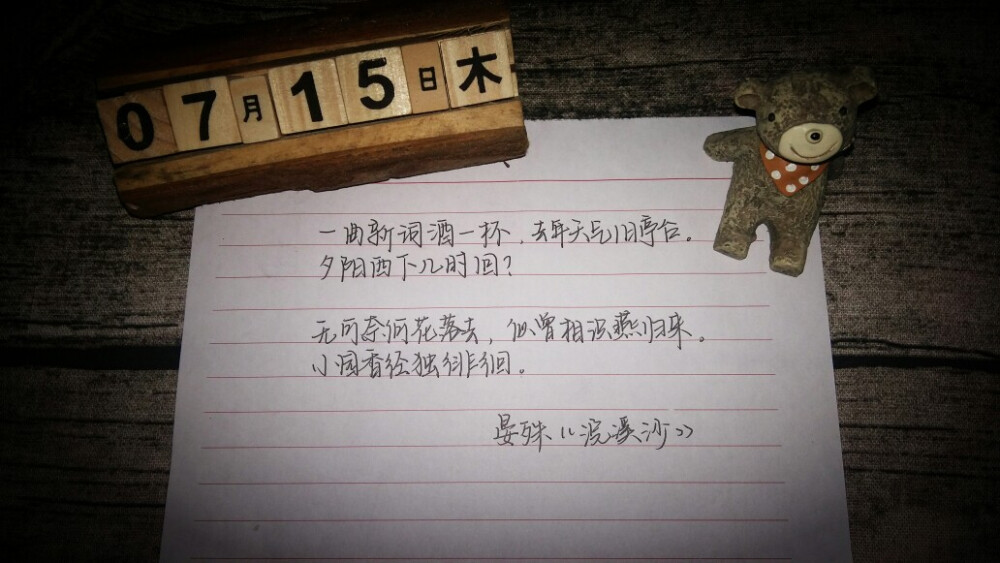 07月15日木
一曲新词酒一杯，去年天气旧亭台。
夕阳西下几时回？
无可奈何花落去，似曾相识燕归来。
小园香径独徘徊。
晏殊《浣溪沙》